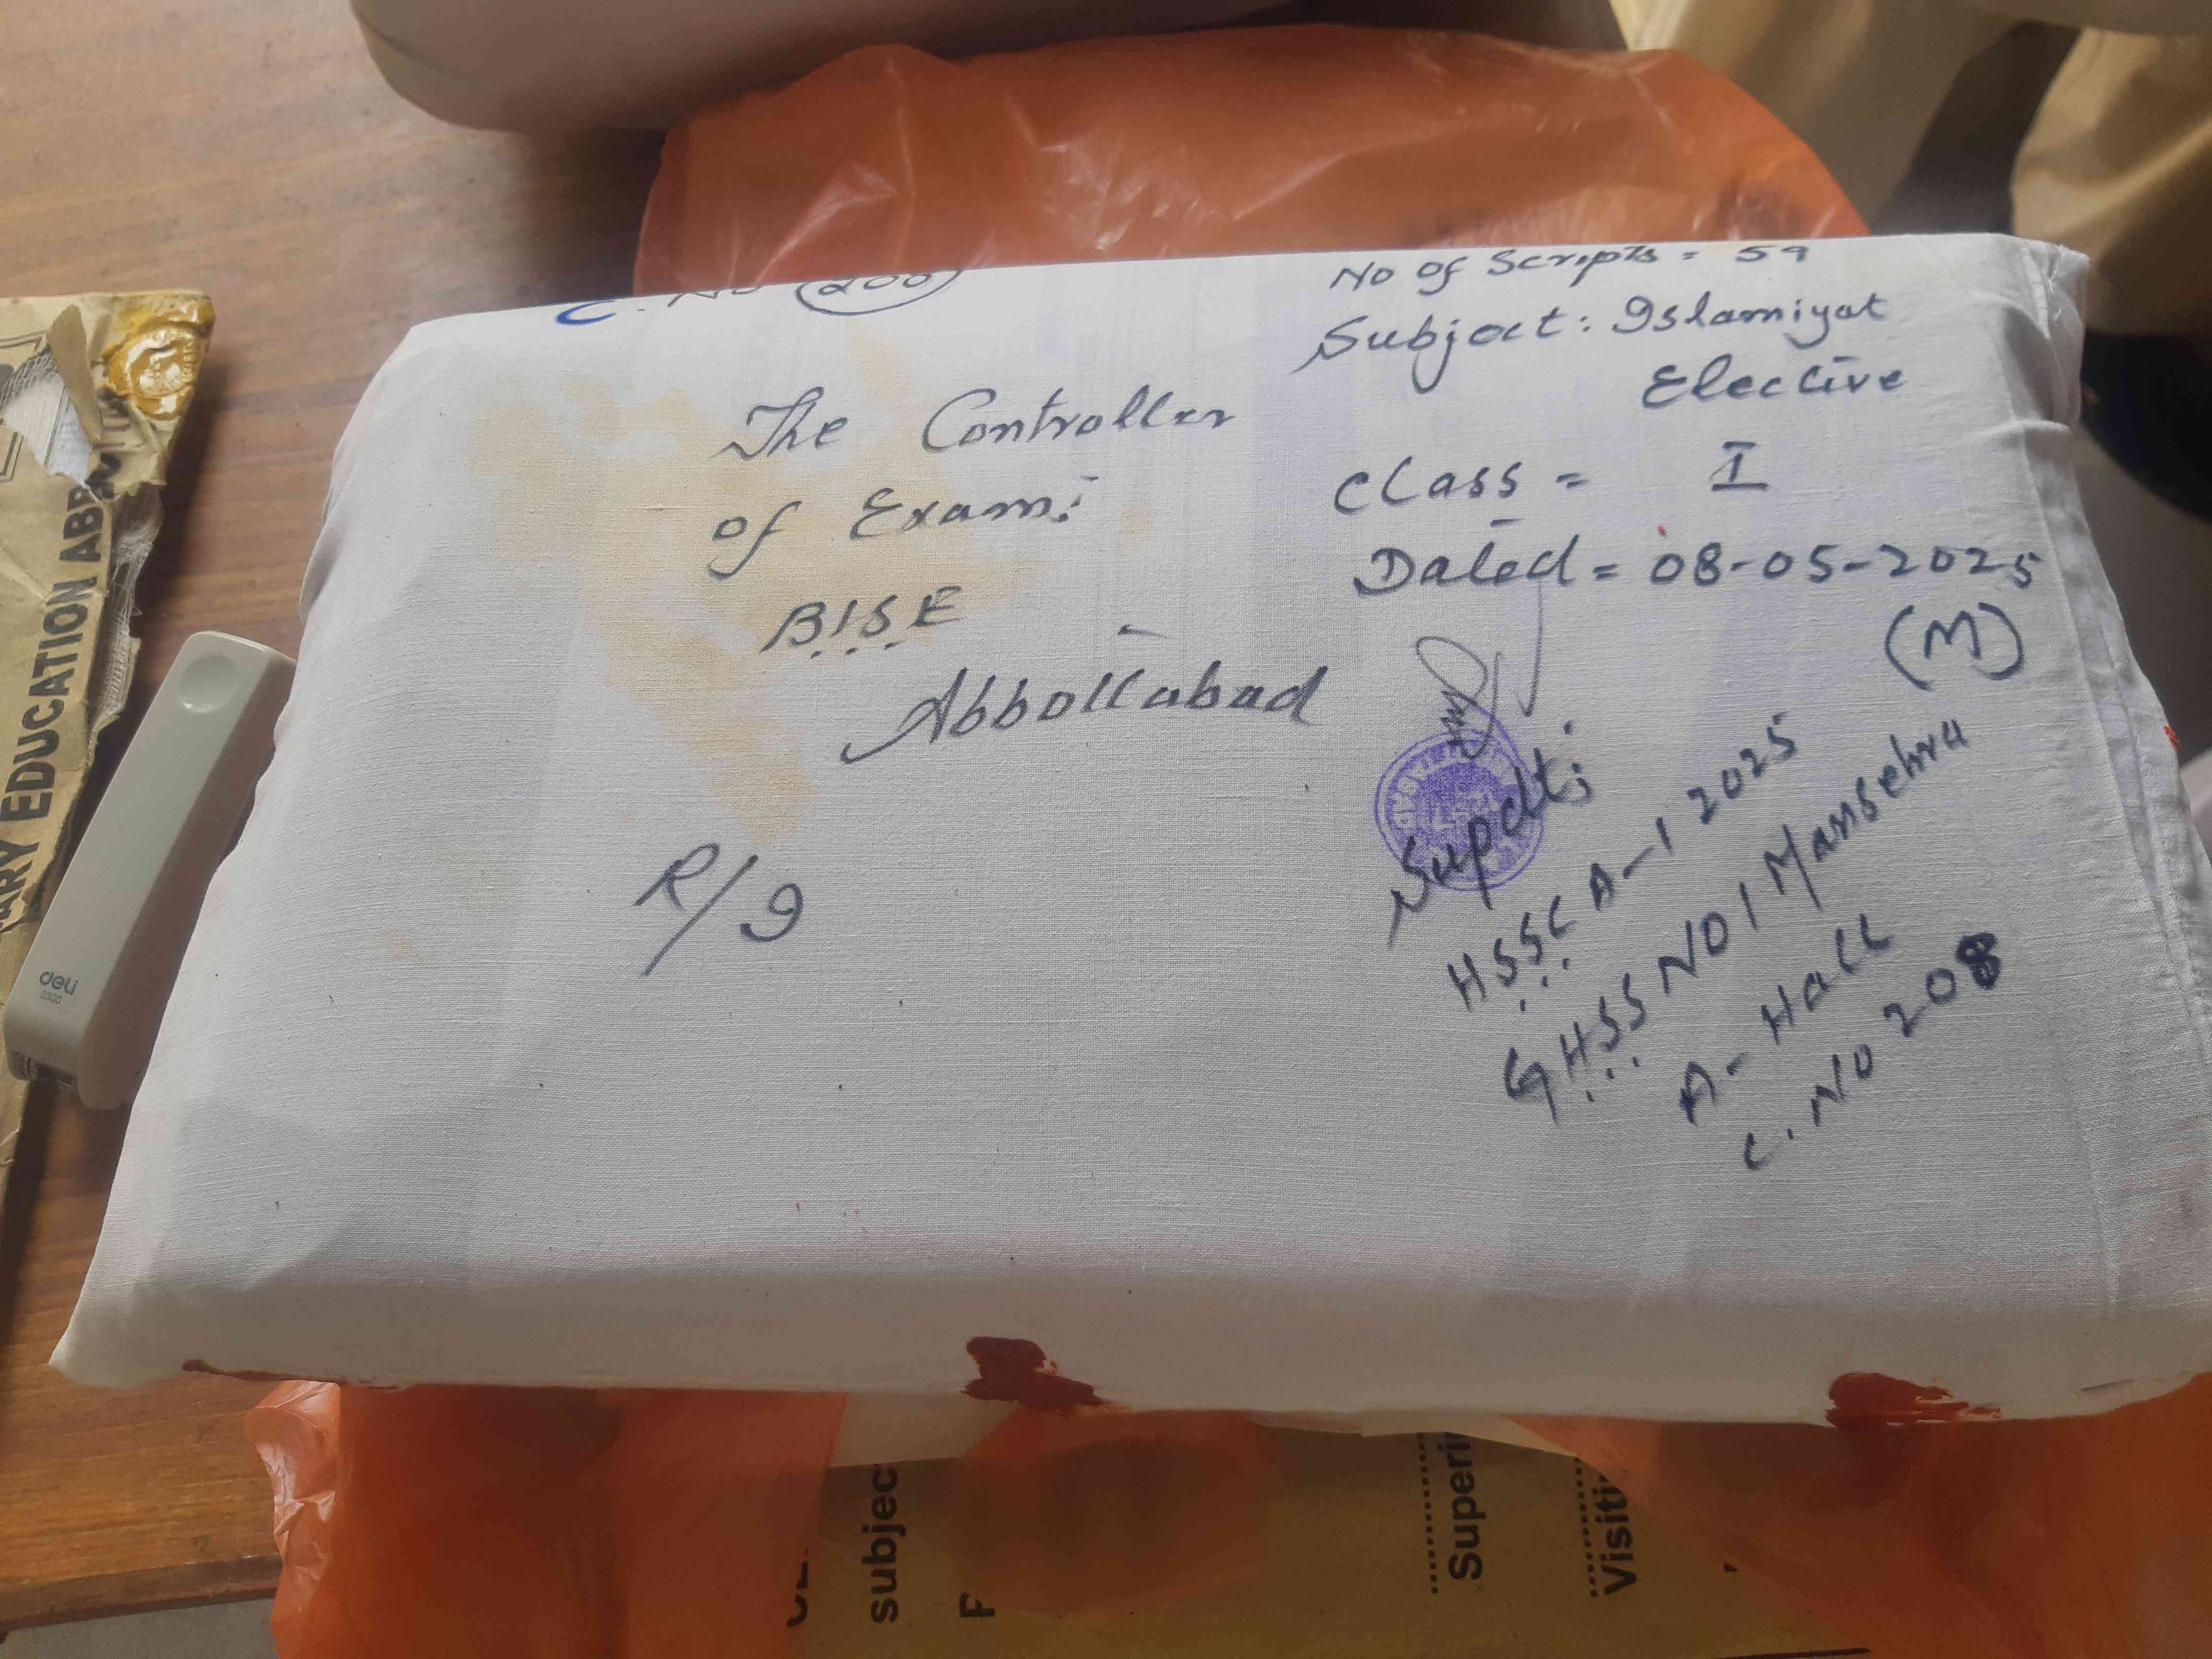 C. No
No of Scripts = 59
Subject: Islamiyat
Elective
The Controller
of Exam:
B.I.S.E
Abbottabad
Class = I
Dated = 08-05-2025
(M)
R/9
Supdt:
HSSC A-I 2025
GHSS NO 1 Mansehra
A-Hall
C. No 208
ARY EDUCATION ABB
deli
0300
subjec
F
Superi
Visiti